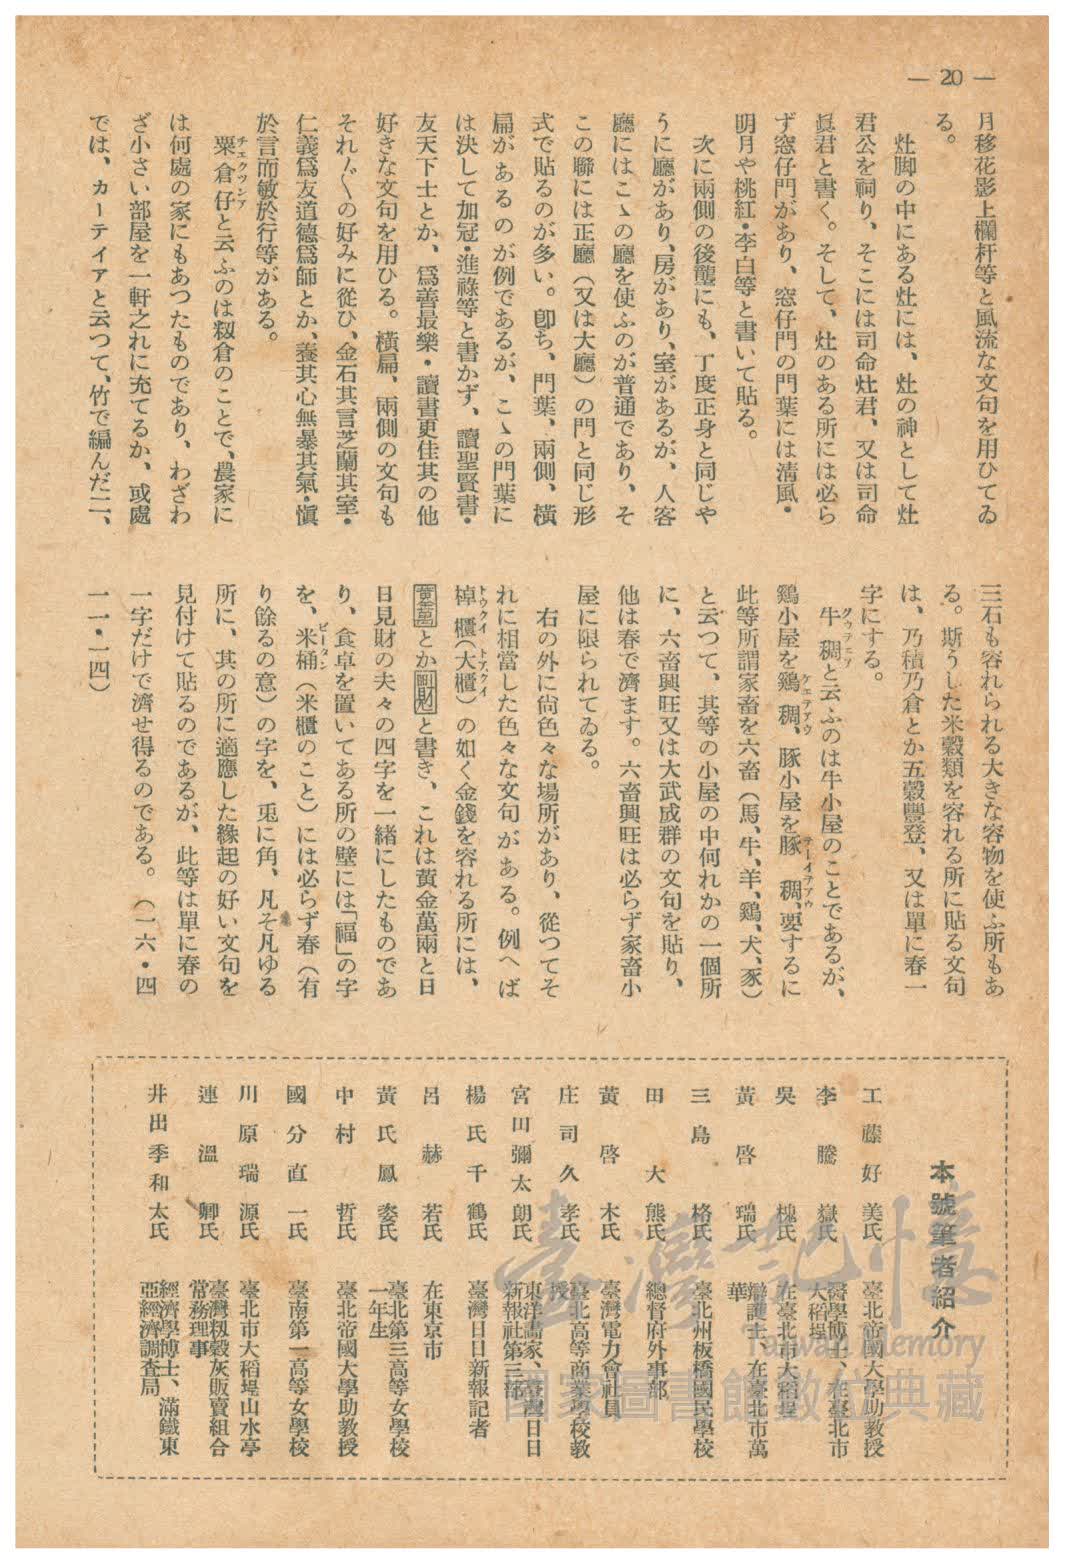 — 20 —
月移花影上欄杆等と風流な文句を用ひてゐ
る。
灶脚の中にある灶には、灶の神として灶
君公を祠り、そこには司命灶君、又は司命
眞君と書く。そして、灶のある所には必ら
ず窓仔門があり、窓仔門の門葉には淸風・
明月や桃紅・李白等と書いて貼る。
次に兩側の後壟にも、丁度正身と同じや
うに廳があり、房があり、室があるが、人客
廳にはこゝの廳を使ふのが普通であり、そ
この聯には正廳（又は大廳）の門と同じ形
式で貼るのが多い。卽ち、門葉、兩側、橫
扁があるのが例であるが、こゝの門葉に
は決して加冠・進祿等と書かず、讀聖賢書・
友天下士とか、爲善最樂・讀書更佳其の他
好きな文句を用ひる。橫扁、兩側の文句も
それ〴〵の好みに從ひ、金石其言芝蘭其室・
仁義爲友道德爲師とか、養其心無暴其氣・愼
於言而敏於行等がある。
粟倉仔と云ふのは籾倉のことで、農家に
チエクツンア
は何處の家にもあつたものであり、わざわ
ざ小さい部屋を一軒之れに充てるか、或處
では、カーテイアと云つて、竹で編んだ二、
三石も容れられる大きな容物を使ふ所もあ
る。斯うした米穀類を容れる所に貼る文句
は、乃積乃倉とか五穀豐登、又は單に春一
字にする。
牛稠と云ふのは牛小屋のことであるが、
グウテヤア
鷄小屋を鷄稠、豚小屋を豚稠、要するに
ケエテアウ
テーイテアウ
此等所謂家畜を六畜（馬、牛、羊、鷄、犬、豕）
と云つて、其等の小屋の中何れかの一個所
に、六畜興旺又は大武成群の文句を貼り、
他は春で濟ます。六畜興旺は必らず家畜小
屋に限られてゐる。
右の外に尙色々な場所があり、從つてそ
れに相當した色々な文句がある。例へば
棹櫃（大櫃）の如く金錢を容れる所には、
トウクイ トアクイ
とか と書き、これは黃金萬兩と日
日見財の夫々の四字を一緖にしたものであ
り、食卓を置いてある所の壁には「福」の字
を、米桶（米櫃のこと）には必らず春（有
ビータン
り餘るの意）の字を、兎に角、凡そ凡ゆる
所に、其の所に適應した緣起の好い文句を
見付けて貼るのであるが、此等は單に春の
一字だけで濟せ得るのである。（一六・四
一一・一四）
本號筆者紹介
工藤好美氏 臺北帝國大學助教授
李騰嶽氏 醫學博士、在臺北市大稻埕
吳槐氏 在臺北市大稻埕
黃啓瑞氏 辯護士、在臺北市萬華
三島格氏 臺北州板橋國民學校
田大熊氏 總督府外事部
黃啓木氏 臺灣電力會社員
庄司久孝氏 臺北高等商業學校教授
宮田彌太朗氏 東洋畫家、臺灣日日新報社第三部
楊氏千鶴氏 臺灣日日新報記者
呂赫若氏 在東京市
黃氏鳳姿氏 臺北第三高等女學校一年生
中村哲氏 臺北帝國大學助教授
國分直一氏 臺南第一高等女學校
川原瑞源氏 臺北市大稻埕山水亭
連溫卿氏 臺灣籾穀灰販賣組合常務理事
井出季和太氏 經濟學博士、滿鐵東亞經濟調査局
臺灣記憶
Taiwan Memory
國家圖書館數位典藏